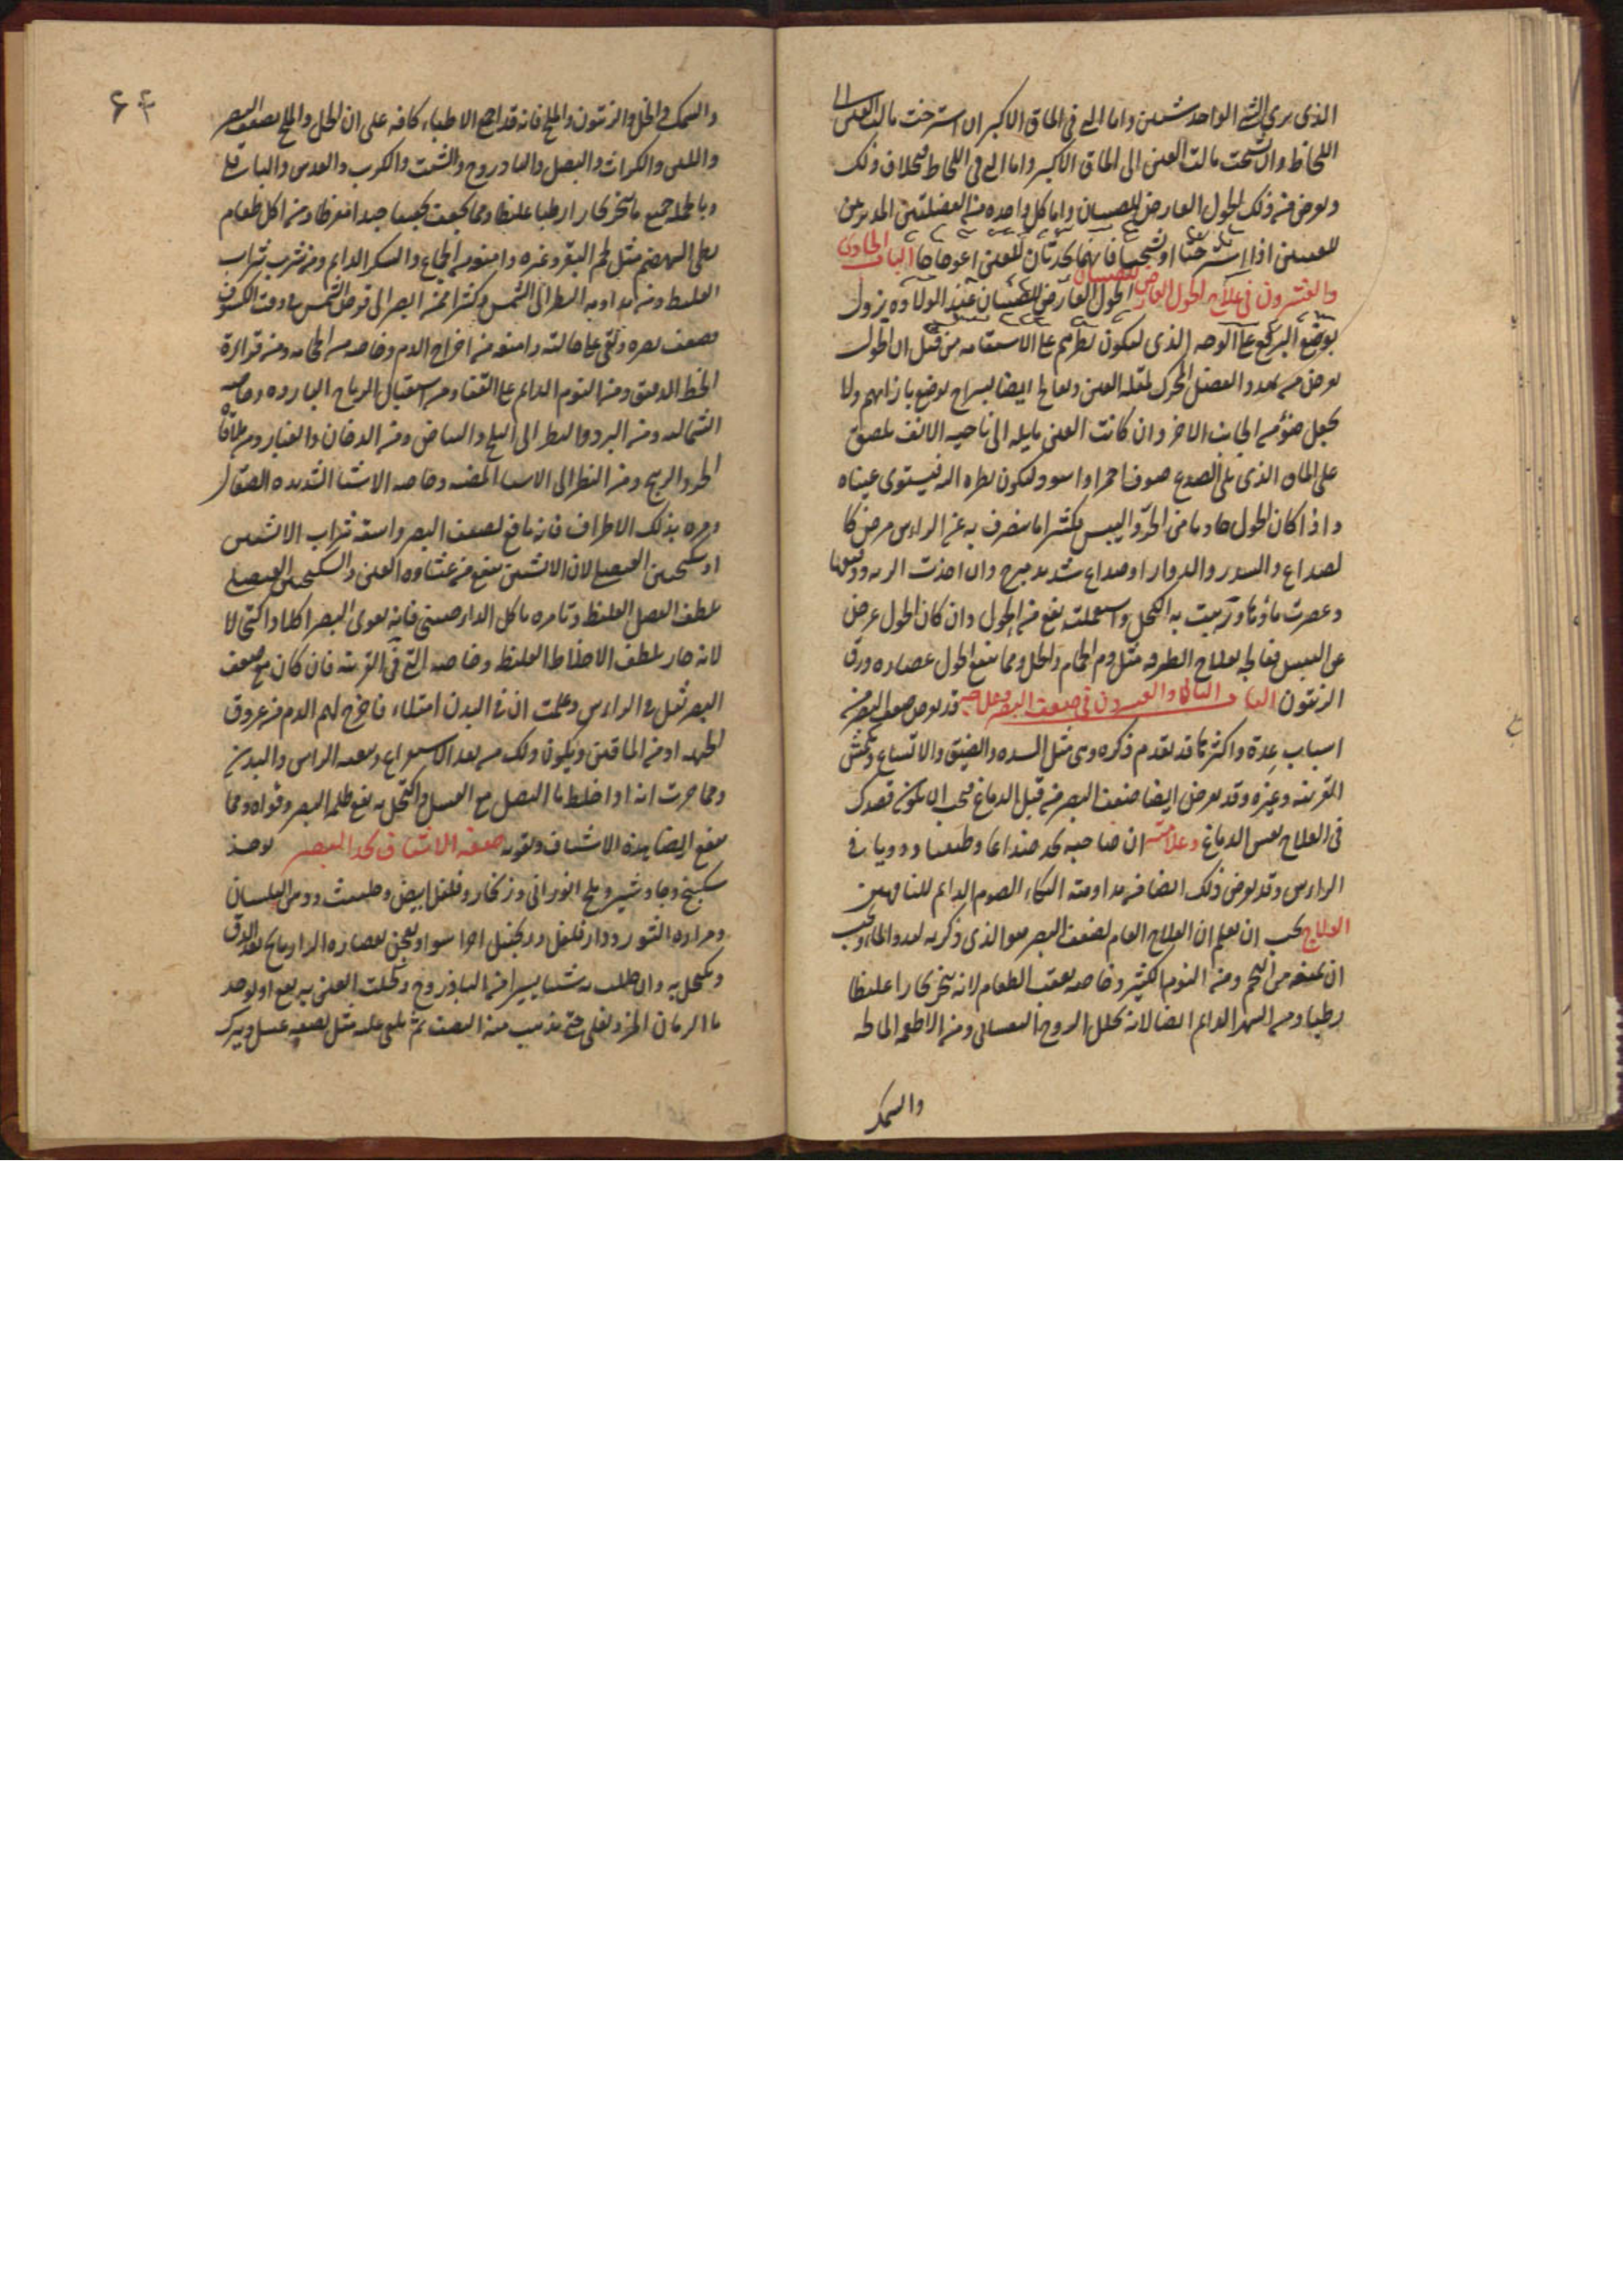 الذي يرى الشي الواحد شيئين واما التي في الماق الاكبر ان استرخت مالت العين الى
اللحاظ وان تشنجت مالت العين الى الماق الاكبر واما التي في اللحاظ فبخلاف ذلك
ويعرض من ذلك الحول العارض للصبيان واما كل واحده من العضلتين المديرتين
للعينين اذا استرختا او تشنجتا فانهما يحدثان للعين اعوجاجا الباب الحادي
والعشرون في علاج الحول العارض للصبيان الحول العارض للصبيان عند الولاده يزول
بوضع البرقع على الوجه الذي ليكون نظرهم على الاستقامه من قبل ان الحول
يعرض من تمدد العضل المحرك لمقله العين ويعالج ايضا بسراج يوضع بازائهم ولا
يجعل ضوءه من الجانب الاخر وان كانت العين مايله الى ناحيه الانف يلصق
على الماق الذي يلي الصدغ صوف احمر او اسود ليكون نظره اليه فيستوي عيناه
واذا كان الحول حادثا من الحر واليبس بكثير اما ينصرف به عن الراس مرض كا
لصداع والسدر والدوار او صداع شديد مبرح وان اخذت الريه ودققتها
وعصرت ماوها وربيت به الكحل واستعملته نفع من الحول وان كان الحول عرض
عن اليبس فعالجه بعلاج الطرفه مثل دم الحمام والخل ومما ينفع الحول عصاره ورق
الزيتون الباب الثاني والعشرون في ضعف البصر وعلاجه قد يعرض ضعف البصر من
اسباب عدة واكثر ما قد تقدم ذكره وهي مثل السده والضيق والاتساع وتكمش
القرنيه وغيره وقد يعرض ايضا ضعف البصر من قبل الدماغ فيجب ان يكون قصدك
في العلاج نفس الدماغ وعلامته ان صاحبه يجد صداعا وطنينا ودويا في
الراس وقد يعرض ذلك ايضا من مداومته البكاء الصوم الدايم للناقهين
العلاج يجب ان تعلم ان العلاج العام لضعف البصر هو الذي ذكر به بعد والحمام ويجب
ان يمنعه من التخم ومن النوم الكثير وخاصه بعقب الطعام لانه يبخر بخارا غليظا
رطبا ومن السهر الدايم ايضا لانه يحلل الروح النفساني ومن الاطعمه المالحه
والسمك
٦٣
والسمك والخل والزيتون والملح فانه قد اجمع الاطباء كافه على ان الخل والملح يضعف البصر
واللبن والكراث والبصل والباذروج والشبت والكرنب والعدس والباقلي
وبالجمله جميع ما يبخر بخارا رطبا غليظا ومما يجفف تجفيفا جيدا مفرطا ومن اكل طعام
بطي الهضم مثل لحم البقر وغيره وامنعه من الجماع والسكر الدايم ومن شرب شراب
الغليظ ومن مداومه النظر الى الشمس فكثير ممن ابصر الى قرص الشمس في وقت الكسوف
فضعف بصره وبقي على حالته وامنعه من اخراج الدم وخاصه من الحجامه ومن قراءة
الخط الدقيق ومن النوم الدايم على القفا ومن استقبال الرياح البارده وخاصه
الشماليه ومن البرد والنظر الى الثلج والبياض ومن الدخان والغبار ومن ملاقاة
الحر والريح ومن النظر الى الاشيا المضيه وخاصه الاشيا الشديده الصقال
ومره بدلك الاطراف فانه نافع لضعف البصر واسقه شراب الافسنتين
او سكنجبين العنصلي لان الافسنتين ينفع من غشاوه العين والسكنجبين العنصلي
يلطف الفضل الغليظ وتامره باكل الدارصيني فانه يقوي البصر اكلا واكتحالا
لانه حار يلطف الاخلاط الغليظه وخاصه التي في القرنيه فان كان مع ضعف
البصر ثقل في الراس وعلمت ان في البدن امتلاء فاخرج لهم الدم من عروق
الجبهه او من الماقين ويكون ذلك من بعد الاستفراغ وتنقيه الراس والبدن
ومما جربت انه اذا خلط ماء البصل مع العسل واكتحل به نفع ظلمه البصر وقواه ومما
ينفع ايضا بهذه الاشياف ويقويه صفه الاشياف يحد البصر يوخذ
سكبينج وجاوشير وملح اندراني وزنجار وفلفل ابيض وحلتيت ودهن البلسان
ومراره الثور ودار فلفل وزنجبيل اجزا سوا ويعجن بعصاره الرازيانج بعد الدق
ويكحل به وان طلبت شيئا يسيرا من الباذروج وكحلت العين به نفع او يوخذ
ماء الرمان المز ويغلى حتى يذهب منه النصف ثم يلقى عليه مثل نصفه عسل ويترك